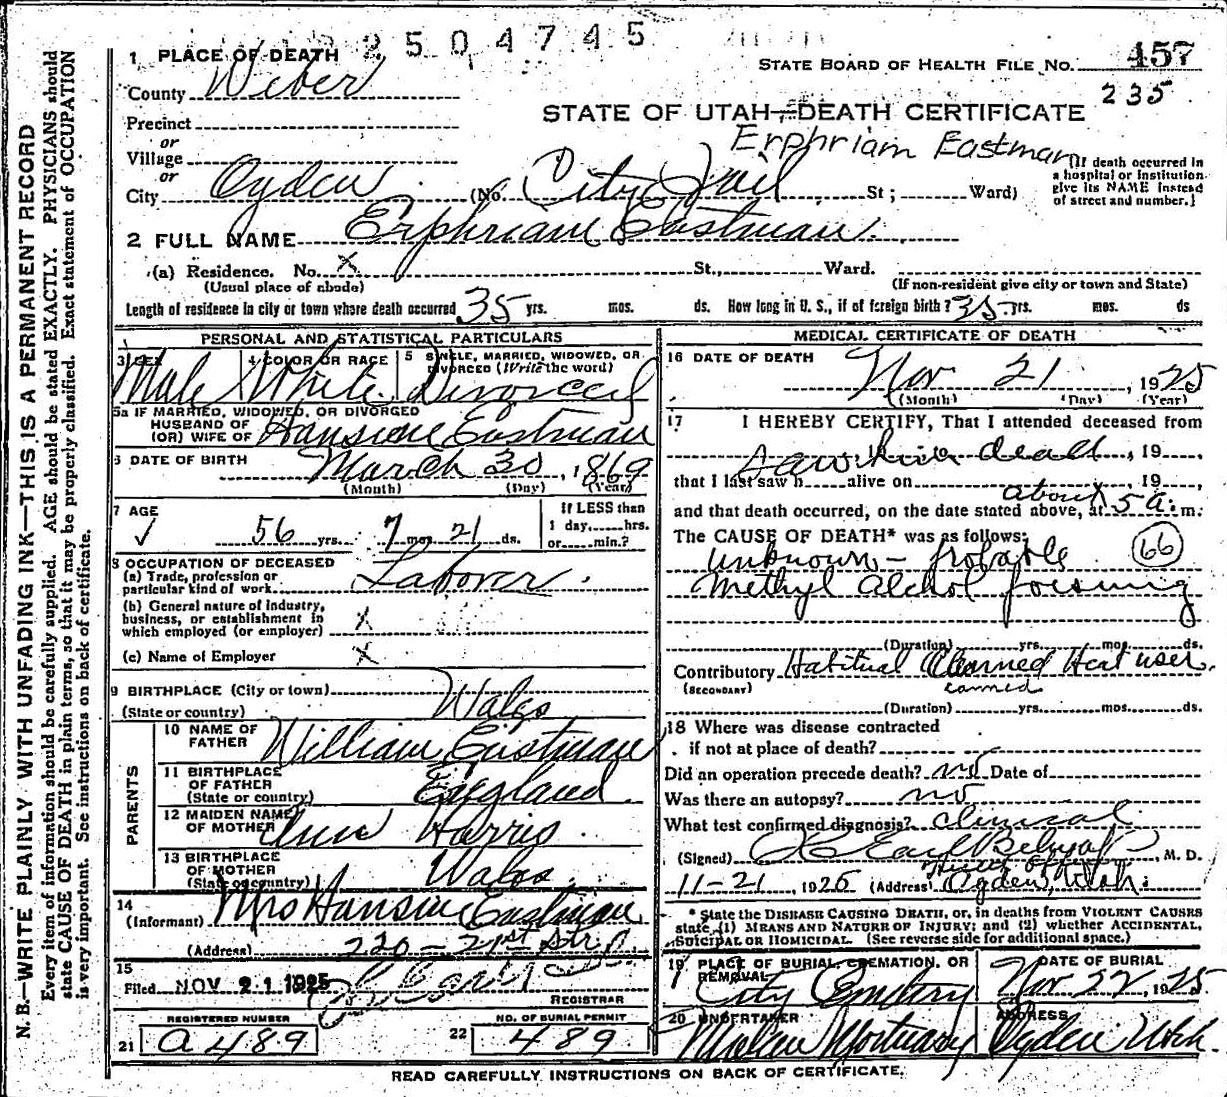 2504745
1 PLACE OF DEATH
STATE BOARD OF HEALTH FILE No. 457
235
County Weber
STATE OF UTAH—DEATH CERTIFICATE
Precinct
Erphriam Eastman
or
Village
or
City Ogden (No. City Jail St; Ward)
[If death occurred in
a hospital or institution
give its NAME instead
of street and number.]
2 FULL NAME Erphriam Eastman
(a) Residence. No. x St., Ward.
(Usual place of abode)
(If non-resident give city or town and State)
Length of residence in city or town where death occurred 35 yrs. mos. ds. How long in U. S., if of foreign birth? 35 yrs. mos. ds
PERSONAL AND STATISTICAL PARTICULARS
3 SEX
Male
4 COLOR OR RACE
White
5 SINGLE, MARRIED, WIDOWED, OR
DIVORCED (Write the word)
Divorced
5a IF MARRIED, WIDOWED, OR DIVORCED
HUSBAND OF
(OR) WIFE OF Hansine Eastman
6 DATE OF BIRTH March 30, 1869
(Month) (Day) (Year)
7 AGE
56 yrs. 7 mos. 21 ds.
If LESS than
1 day,......hrs.
or......min.?
8 OCCUPATION OF DECEASED
(a) Trade, profession or
particular kind of work Laborer.
(b) General nature of industry,
business, or establishment in
which employed (or employer) x
(c) Name of Employer x
9 BIRTHPLACE (City or town)
(State or country) Wales
PARENTS
10 NAME OF
FATHER William Eastman
11 BIRTHPLACE
OF FATHER
(State or country) England
12 MAIDEN NAME
OF MOTHER Ann Harris
13 BIRTHPLACE
OF MOTHER
(State or country) Wales
14
(Informant) Mrs Hansine Eastman
(Address) 220 - 21st Str
15
Filed NOV 21 1925
REGISTRAR
REGISTERED NUMBER
21 A 489
NO. OF BURIAL PERMIT
22 489
MEDICAL CERTIFICATE OF DEATH
16 DATE OF DEATH
Nov 21, 1925
(Month) (Day) (Year)
17 I HEREBY CERTIFY, That I attended deceased from
saw him dead, 19
that I last saw h alive on , 19
and that death occurred, on the date stated above, at about 5 a. m.
The CAUSE OF DEATH* was as follows:
unknown - probable 66
Methyl Alchol poisning
(Duration) yrs. mos. ds.
Contributory Habitual Canned Heat user.
(SECONDARY) canned
(Duration) yrs. mos. ds.
18 Where was disease contracted
if not at place of death?
Did an operation precede death? no Date of
Was there an autopsy? no
What test confirmed diagnosis? clinical
(Signed) , M. D.
11-21, 1925 (Address) Ogden, Utah.
* State the DISEASE CAUSING DEATH, or, in deaths from VIOLENT CAUSES
state (1) MEANS AND NATURE OF INJURY; and (2) whether ACCIDENTAL,
SUICIDAL OR HOMICIDAL. (See reverse side for additional space.)
19 PLACE OF BURIAL, CREMATION, OR
REMOVAL
City Cemetery
DATE OF BURIAL
Nov 22, 1925.
20 UNDERTAKER
Mortuary
ADDRESS
Ogden Utah.
READ CAREFULLY INSTRUCTIONS ON BACK OF CERTIFICATE.
N. B.—WRITE PLAINLY WITH UNFADING INK—THIS IS A PERMANENT RECORD
Every item of information should be carefully supplied. AGE should be stated EXACTLY. PHYSICIANS should
state CAUSE OF DEATH in plain terms, so that it may be properly classified. Exact statement of OCCUPATION
is very important. See instructions on back of certificate.